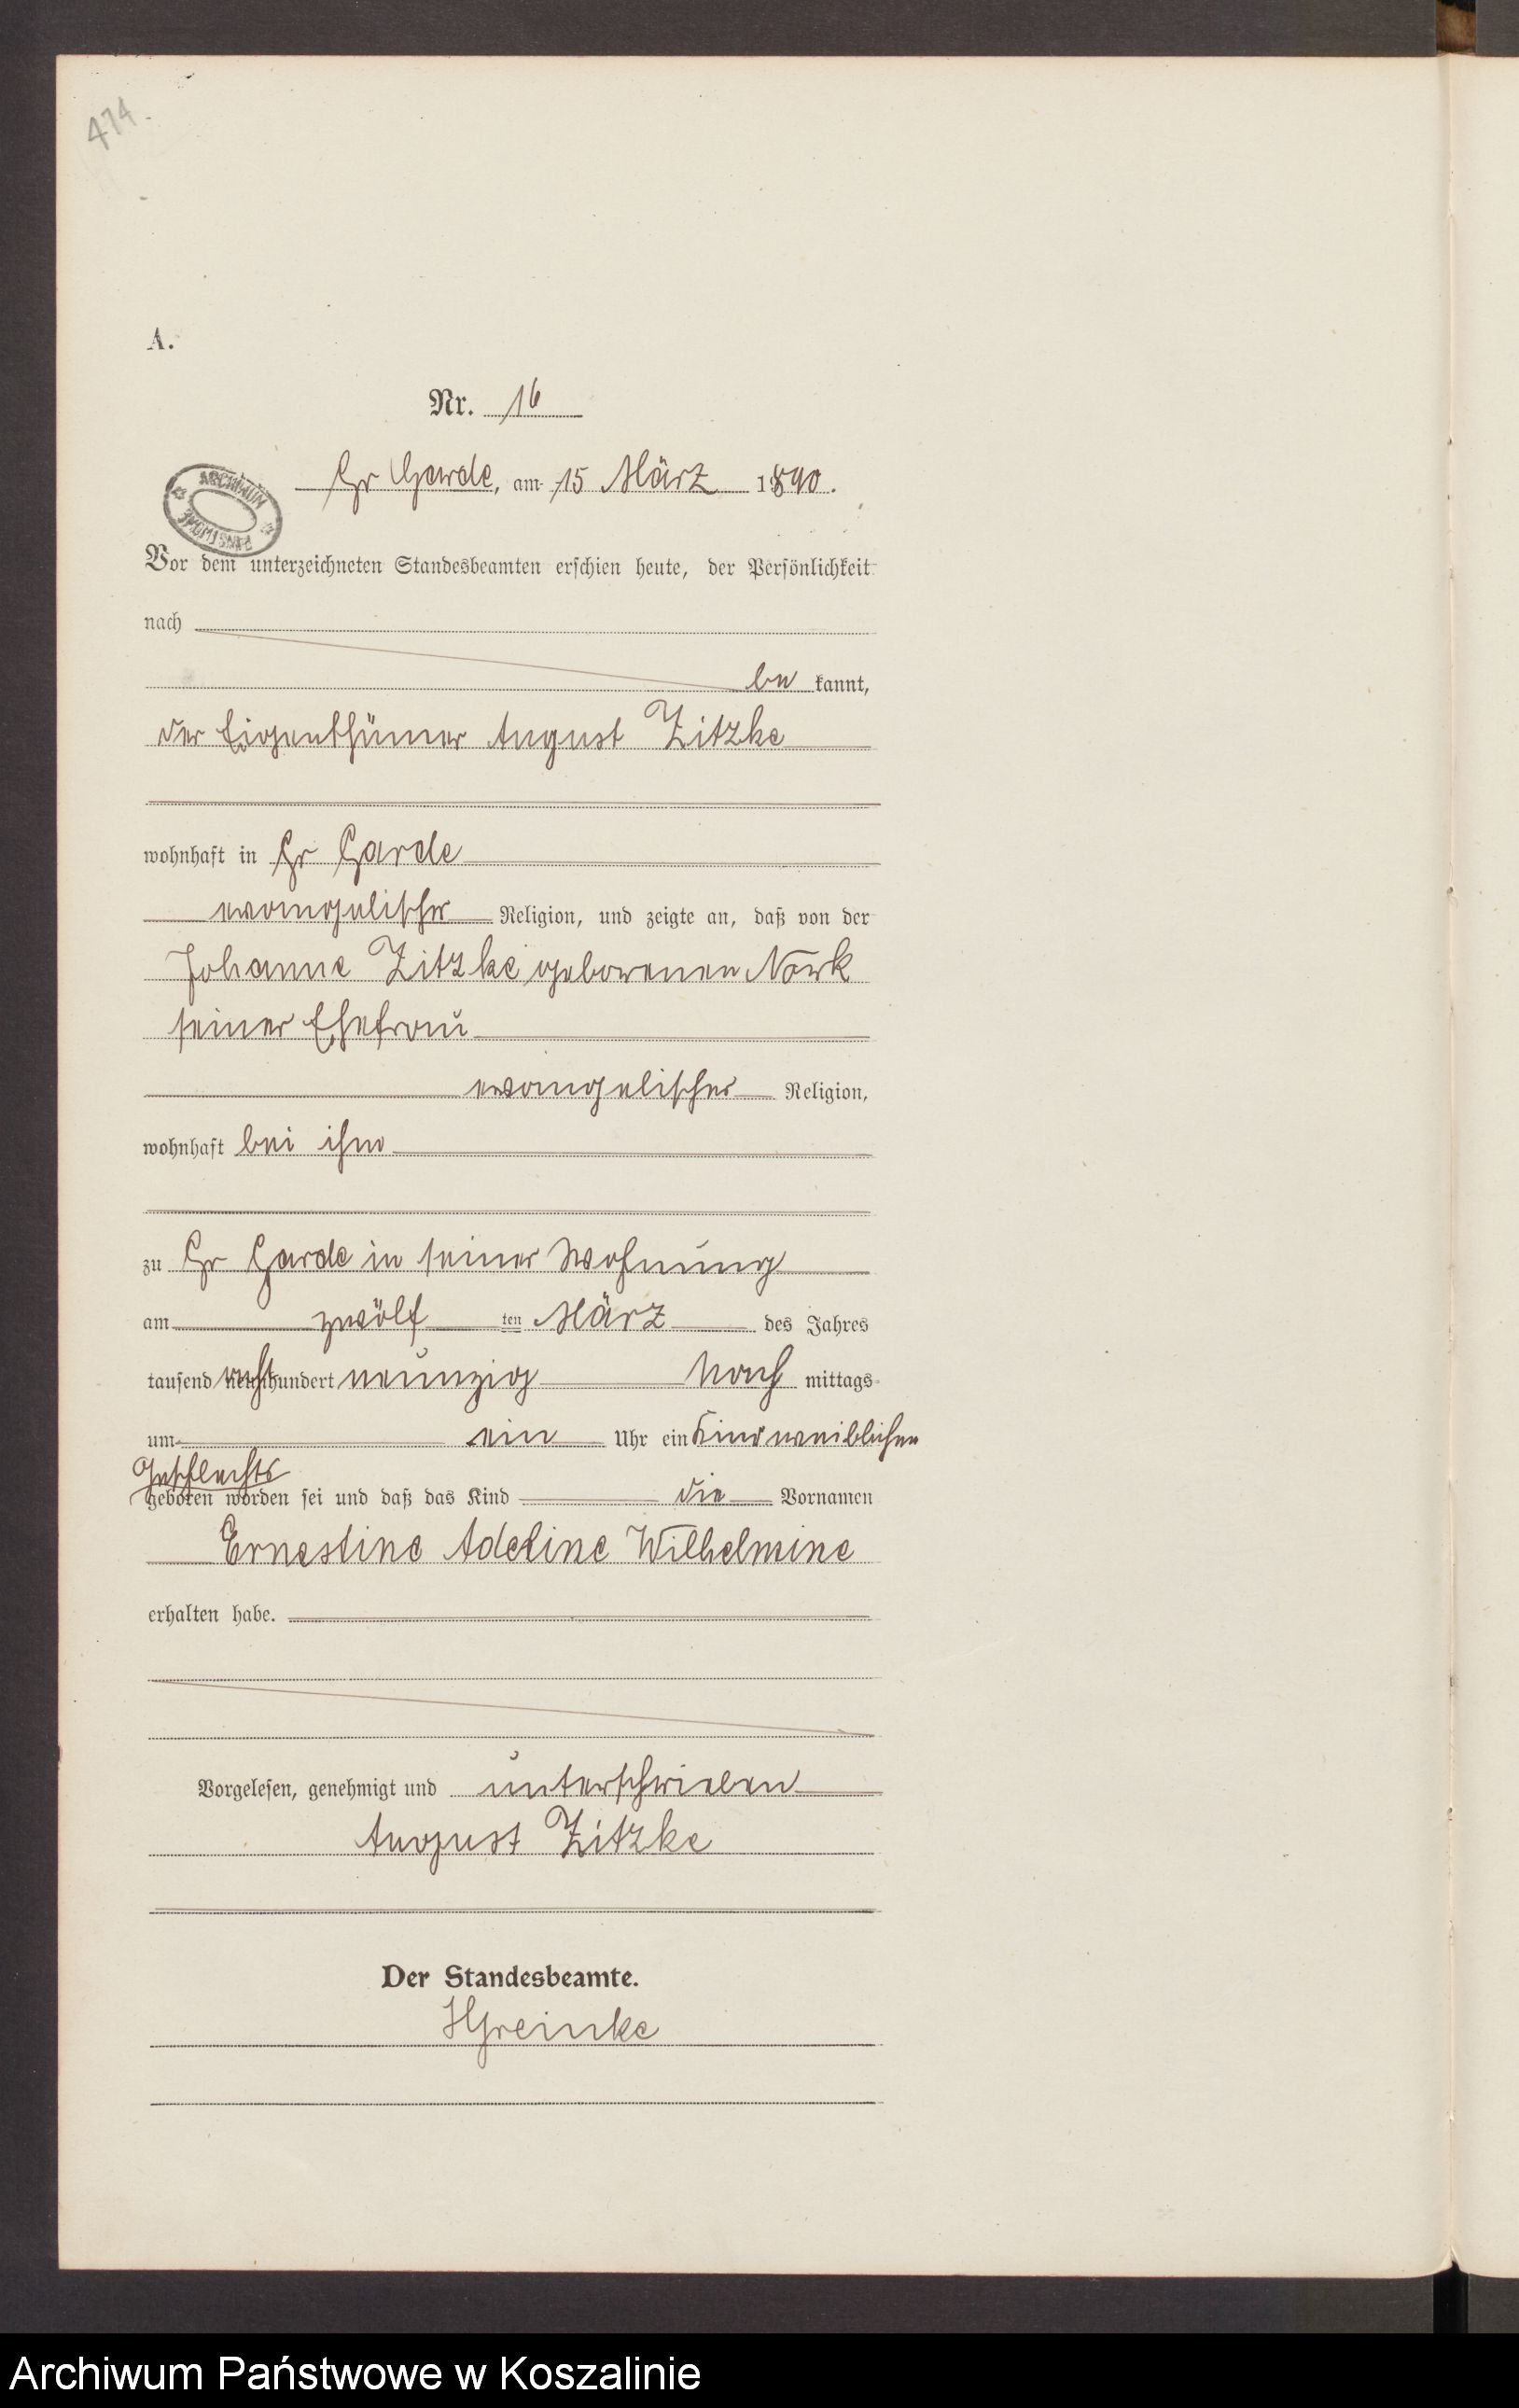 474.
A.
Nr. 16
Gr Garde, am 15 März 1890.
ARCHIWUM
PAŃSTWOWE
Vor dem unterzeichneten Standesbeamten erschien heute, der Persönlichkeit
nach
be kannt,
der Eigenthümer August Zitzke
wohnhaft in Gr Garde
evangelischer Religion, und zeigte an, daß von der
Johanne Zitzke geborenen Nörk
seiner Ehefrau
evangelischer Religion,
wohnhaft bei ihm
zu Gr Garde in seiner Wohnung
am zwölf ten März des Jahres
tausend acht hundert neunzig Nach mittags
um ein Uhr ein Kind weiblichen
Geschlechts
geboren worden sei und daß das Kind die Vornamen
Ernestine Adeline Wilhelmine
erhalten habe.
Vorgelesen, genehmigt und unterschrieben
August Zitzke
Der Standesbeamte.
HGreinke
Archiwum Państwowe w Koszalinie